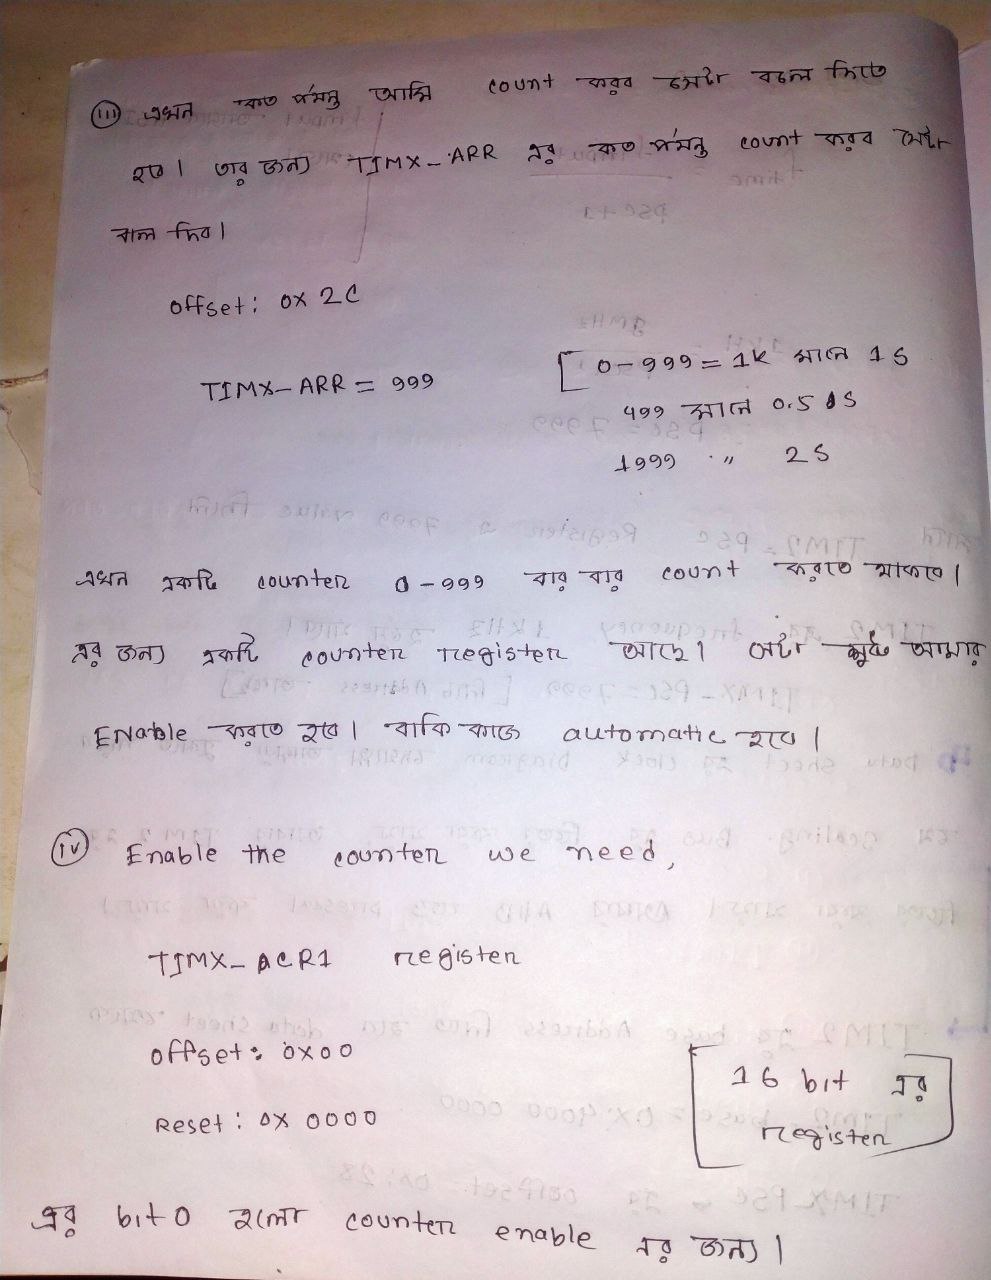 (iii) এখন কত পর্যন্ত আমি count করব সেটা বলে দিতে
হবে। তার জন্য TIMX-ARR এর কত পর্যন্ত count করব সেটা
বলে দিব।
offset: 0x 2C
TIMX-ARR = 999
[ 0-999 = 1k মানে 1S
499 মানে 0.5 S
1999 " 2S
এখন একটি counter 0-999 বার বার count করতে থাকবে।
এর জন্য একটি counter register আছে। সেটা আমার
Enable করতে হবে। বাকি কাজ automatic হবে।
(iv) Enable the counter we need,
TIMX- CR1 register
offset: 0x00
Reset: 0x 0000
[16 bit এর
register]
এর bit 0 হলো counter enable এর জন্য।